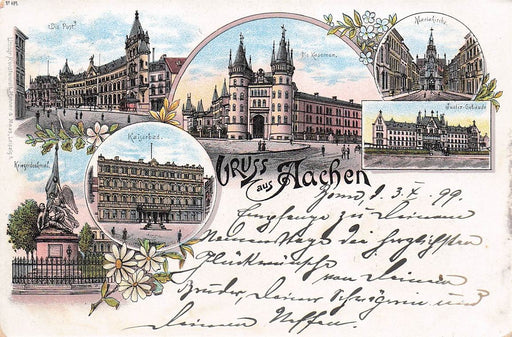 N° 495
"Die Post."
Die Kasernen.
Mariakirche.
Kaiserbad.
Kriegerdenkmal.
Gruss aus Aachen
d. 3. X. 99.
Empfange zu Deinem
Namenstage die herzlichsten
Glückwünsche von Deinem
Bruder, Deiner Schwägerin und
Deinem Neffen.